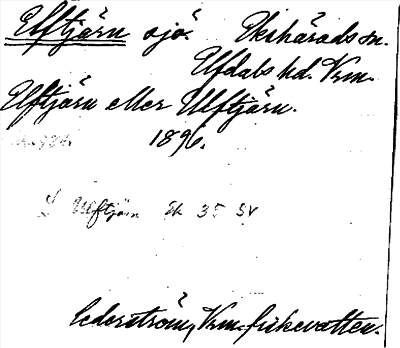 Ulftjärn sjö. Ekshärads sn.
Elfdals hd. Vrm.
Ulftjärn eller Ullftjärn.
1896.
L Ulftjärn Ek 35 SV
Cederström, Vrm. fiskevatten.